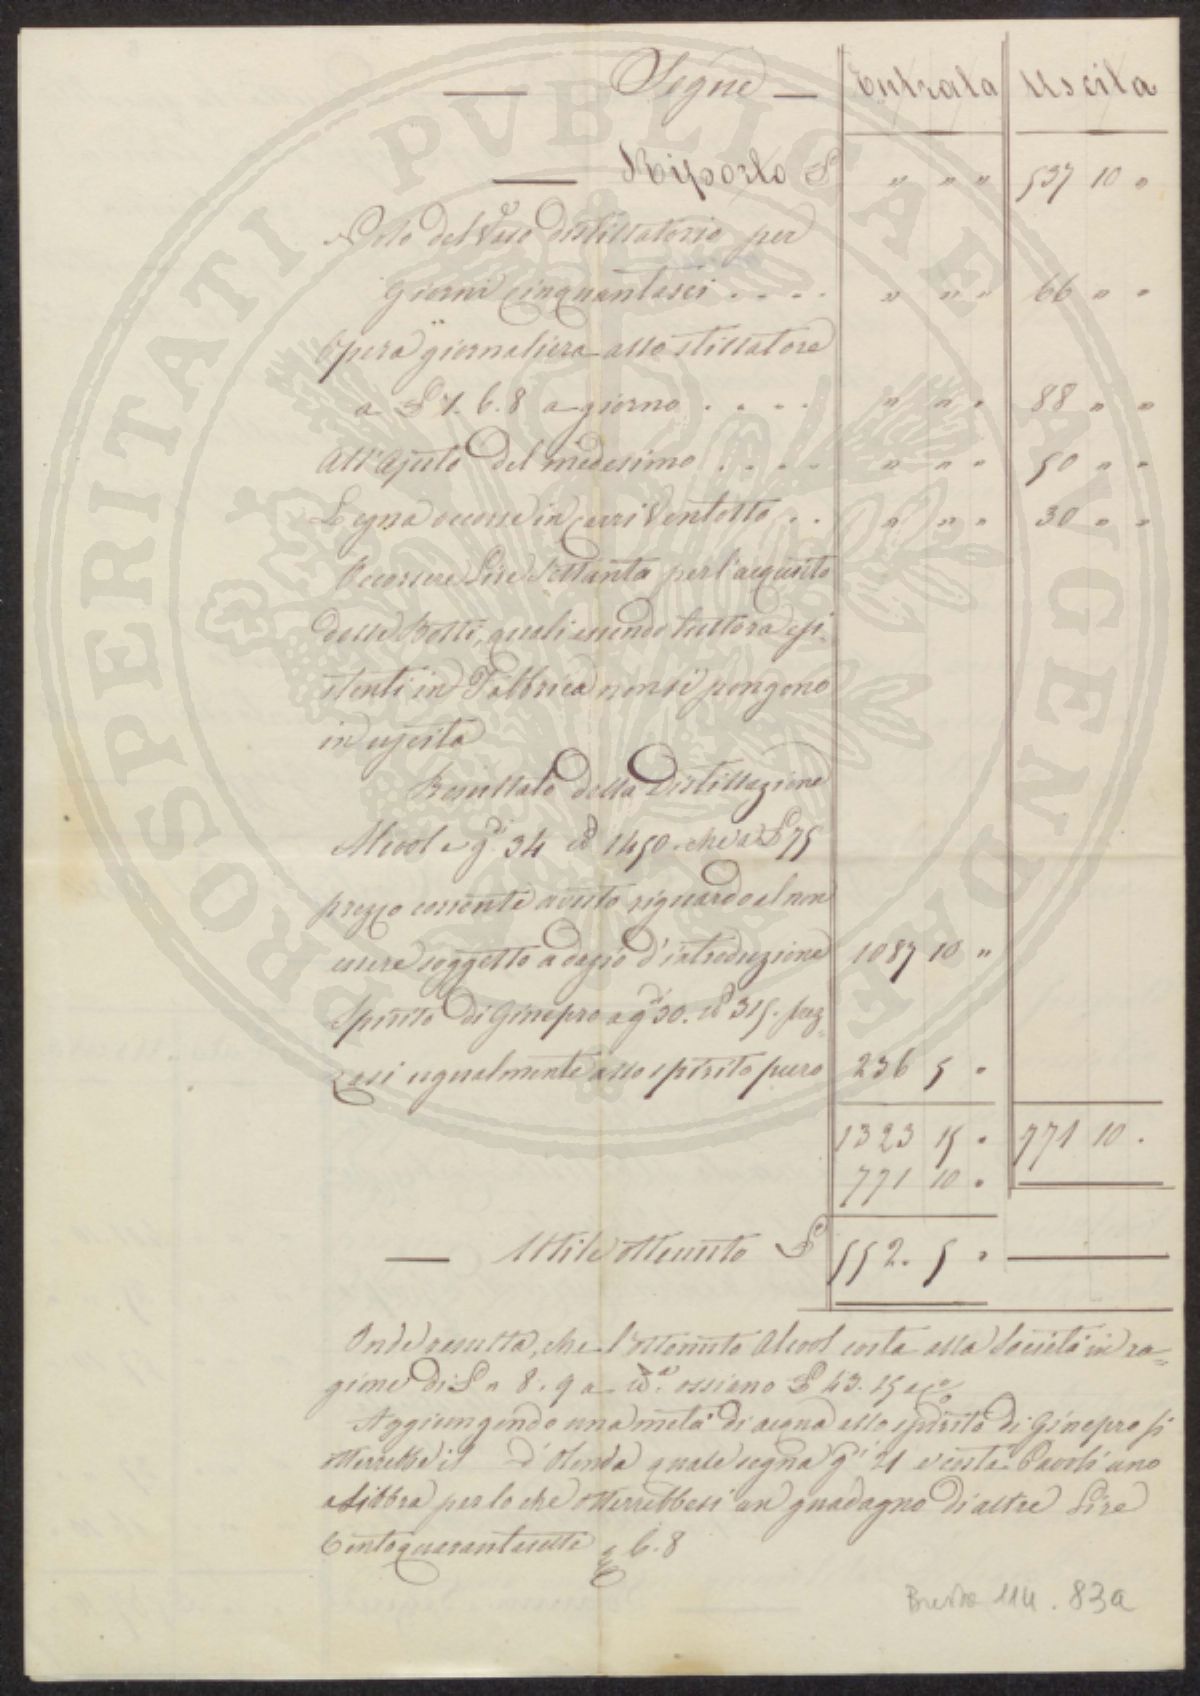 Segue Entrata Uscita
Riporto £ " " " 537 10 "
Nolo del Vaso distillatorio per
giorni cinquantasei . . . . " " " 66 " "
Opera giornaliera allo stillatore
a £ 1. 6. 8 a giorno . . . . " " " 88 " "
All'Ajuto del medesimo . . . . " " " 50 " "
Legna occorse in carri Ventotto . . " " " 30 " "
Occorsere Lire Settanta per l'acquisto
delle Botti, quali essendo tuttora esi-
stenti in Fabbrica non si pongono
in uscita
Resultato della Distillazione
Alcool a g.di 34 lb 1450. che a £ 75
prezzo corrente avuto riguardo al non
essere soggetto a dazio d'introduzione 1087 10 "
Spirito di Ginepro a g.di 30. lb 315. prez=
zasi ugualmente allo spirito puro 236 5 "
1323 15 " 771 10 "
771 10 "
Utile ottenuto £ 552. 5 "
Onde resulta, che l'ottenuto Alcool costa alla Società in ra=
gione di £ " 8. 9 a lb.a ossiano £ 43. 15 a %
Aggiungendo una metà di acqua allo spirito di Ginepro si
otterrebbe il d'Olanda quale segna g.di 21 e costa Paoli uno
a Libbra per lo che otterrebbesi un guadagno di altre Lire
Centoquarantasette e 6. 8
114. 83a
PROSPERITATI PVBLICAE AVGENDAE